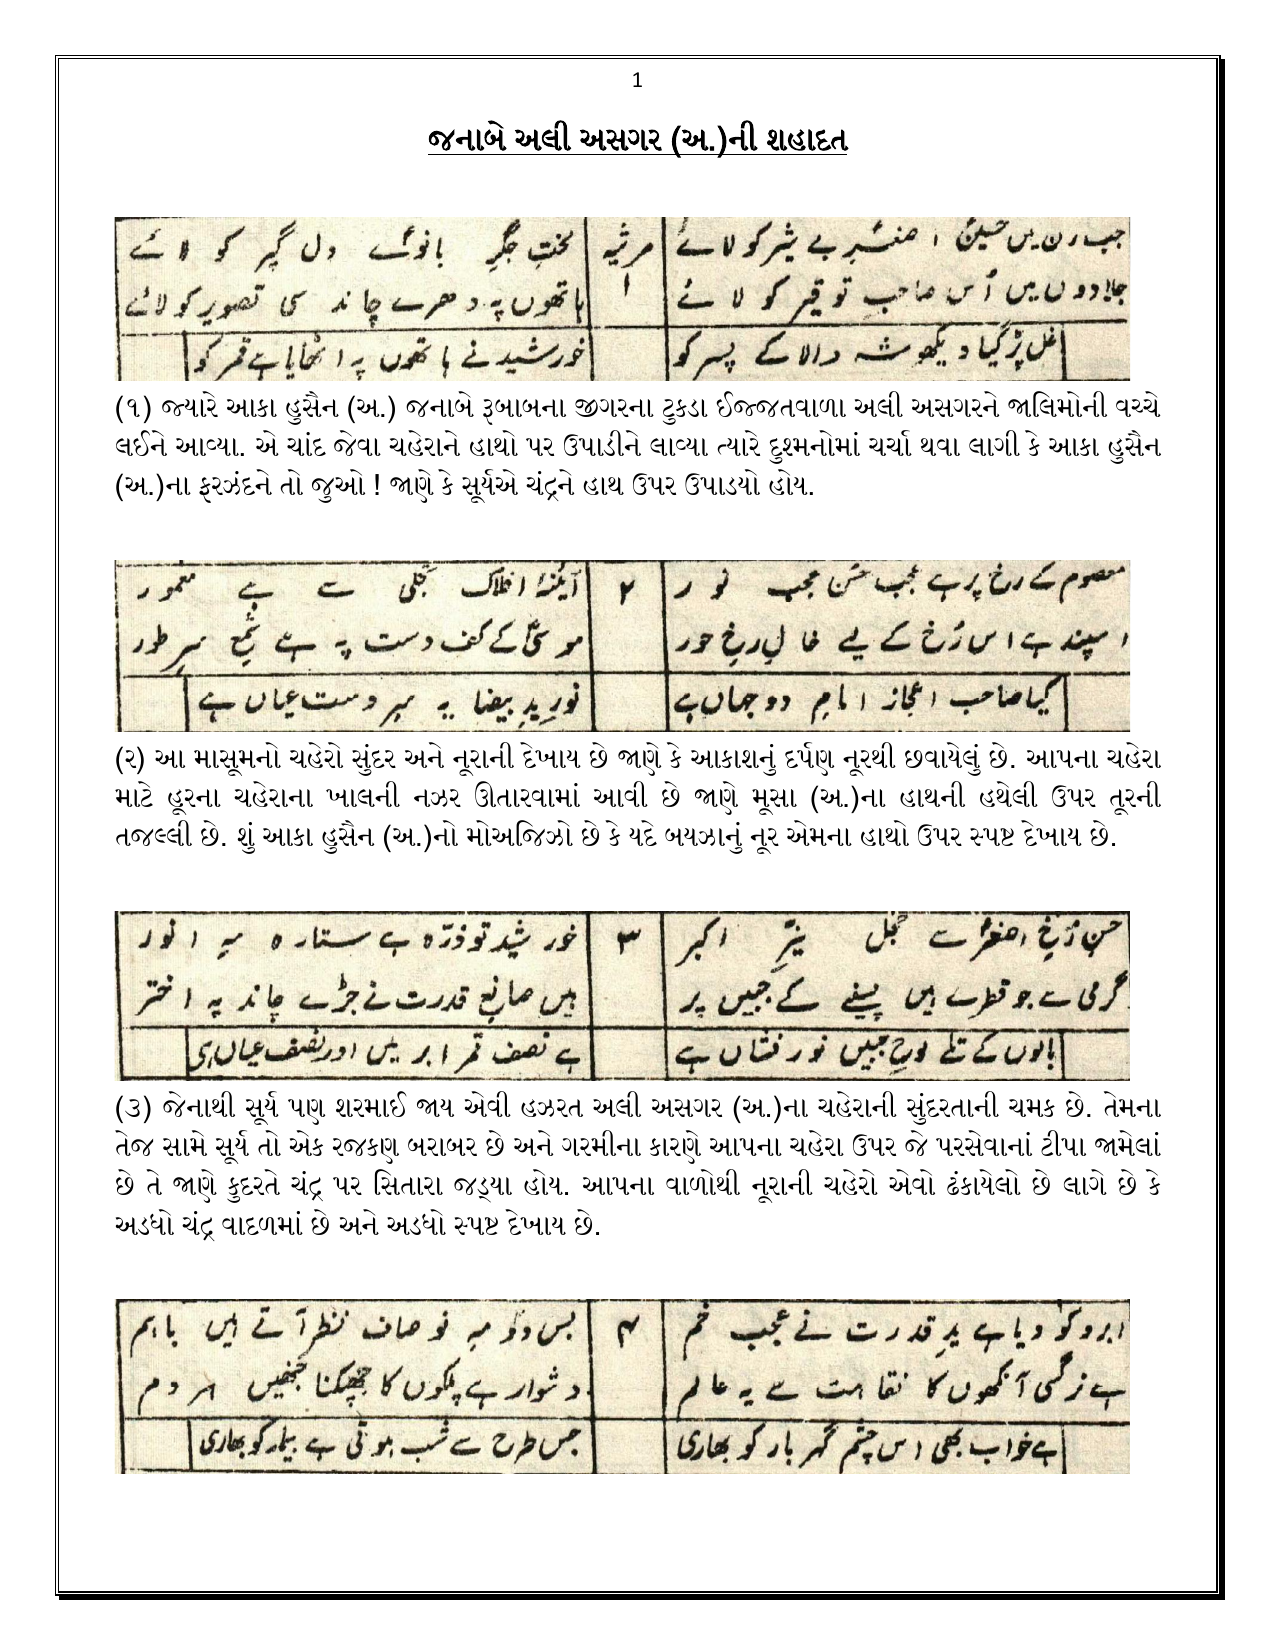 1
જનાબે અલી અસગર (અ.)ની શહાદત
جب رن میں حسینؑ اصغرِؑ بے شیر کو لائے مرثیہ لختِ جگرِ بانوئے دل گیر کو لائے
جلادوں میں اُس صاحبِ توقیر کو لائے ۱ ہاتھوں پہ دھرے چاند سی تصویر کو لائے
غل پڑ گیا دیکھو شہ والا کے پسر کو خورشید نے ہاتھوں پہ اٹھایا ہے قمر کو
(૧) જ્યારે આકા હુસૈન (અ.) જનાબે રૂબાબના જીગરના ટુકડા ઈજ્જતવાળા અલી અસગરને જાલિમોની વચ્ચે
લઈને આવ્યા. એ ચાંદ જેવા ચહેરાને હાથો પર ઉપાડીને લાવ્યા ત્યારે દુશ્મનોમાં ચર્ચા થવા લાગી કે આકા હુસૈન
(અ.)ના ફરઝંદને તો જુઓ ! જાણે કે સૂર્યએ ચંદ્રને હાથ ઉપર ઉપાડયો હોય.
معصوم کے رخ پر ہے عجب حسن عجب نور ۲ آئینۂ افلاک تجلی سے ہے معمور
اسپند ہے اس رُخ کے لیے خالِ رخِ حور موسیٰؑ کے کف دست پہ ہے شمعِ سرِ طور
کیا صاحب اعجاز امامِ دو جہاں ہے نورِ یدِ بیضا یہ سرِ دست عیاں ہے
(૨) આ માસૂમનો ચહેરો સુંદર અને નૂરાની દેખાય છે જાણે કે આકાશનું દર્પણ નૂરથી છવાયેલું છે. આપના ચહેરા
માટે હૂરના ચહેરાના ખાલની નઝર ઊતારવામાં આવી છે જાણે મૂસા (અ.)ના હાથની હથેલી ઉપર તૂરની
તજલ્લી છે. શું આકા હુસૈન (અ.)નો મોઅજિઝો છે કે યદે બયઝાનું નૂર એમના હાથો ઉપર સ્પષ્ટ દેખાય છે.
حسنِ رُخِ اصغرؑ سے خجل نیّرِ اکبر ۳ خورشید تو ذرّہ ہے ستارہ مہِ انور
گرمی سے جو قطرے ہیں پسینے کے جبیں پر ہیں صانعِ قدرت نے جڑے چاند پہ اختر
بالوں کے تلے لوحِ جبیں نور فشاں ہے ہے نصف قمر ابر میں اور نصف عیاں ہے
(૩) જેનાથી સૂર્ય પણ શરમાઈ જાય એવી હઝરત અલી અસગર (અ.)ના ચહેરાની સુંદરતાની ચમક છે. તેમના
તેજ સામે સૂર્ય તો એક રજકણ બરાબર છે અને ગરમીના કારણે આપના ચહેરા ઉપર જે પરસેવાનાં ટીપા જામેલાં
છે તે જાણે કુદરતે ચંદ્ર પર સિતારા જડ્યા હોય. આપના વાળોથી નૂરાની ચહેરો એવો ઢંકાયેલો છે લાગે છે કે
અડધો ચંદ્ર વાદળમાં છે અને અડધો સ્પષ્ટ દેખાય છે.
ابرو کو دیا ہے یدِ قدرت نے عجب خم ۴ بس دو مہِ نو صاف نظر آتے ہیں باہم
ہے نرگسی آنکھوں کا نقاہت سے یہ عالم دشوار ہے پلکوں کا جھپکنا جنھیں ہر دم
ہے خواب بھی اس چشمِ گہر بار کو بھاری جس طرح سے شب ہوتی ہے بیمار کو بھاری